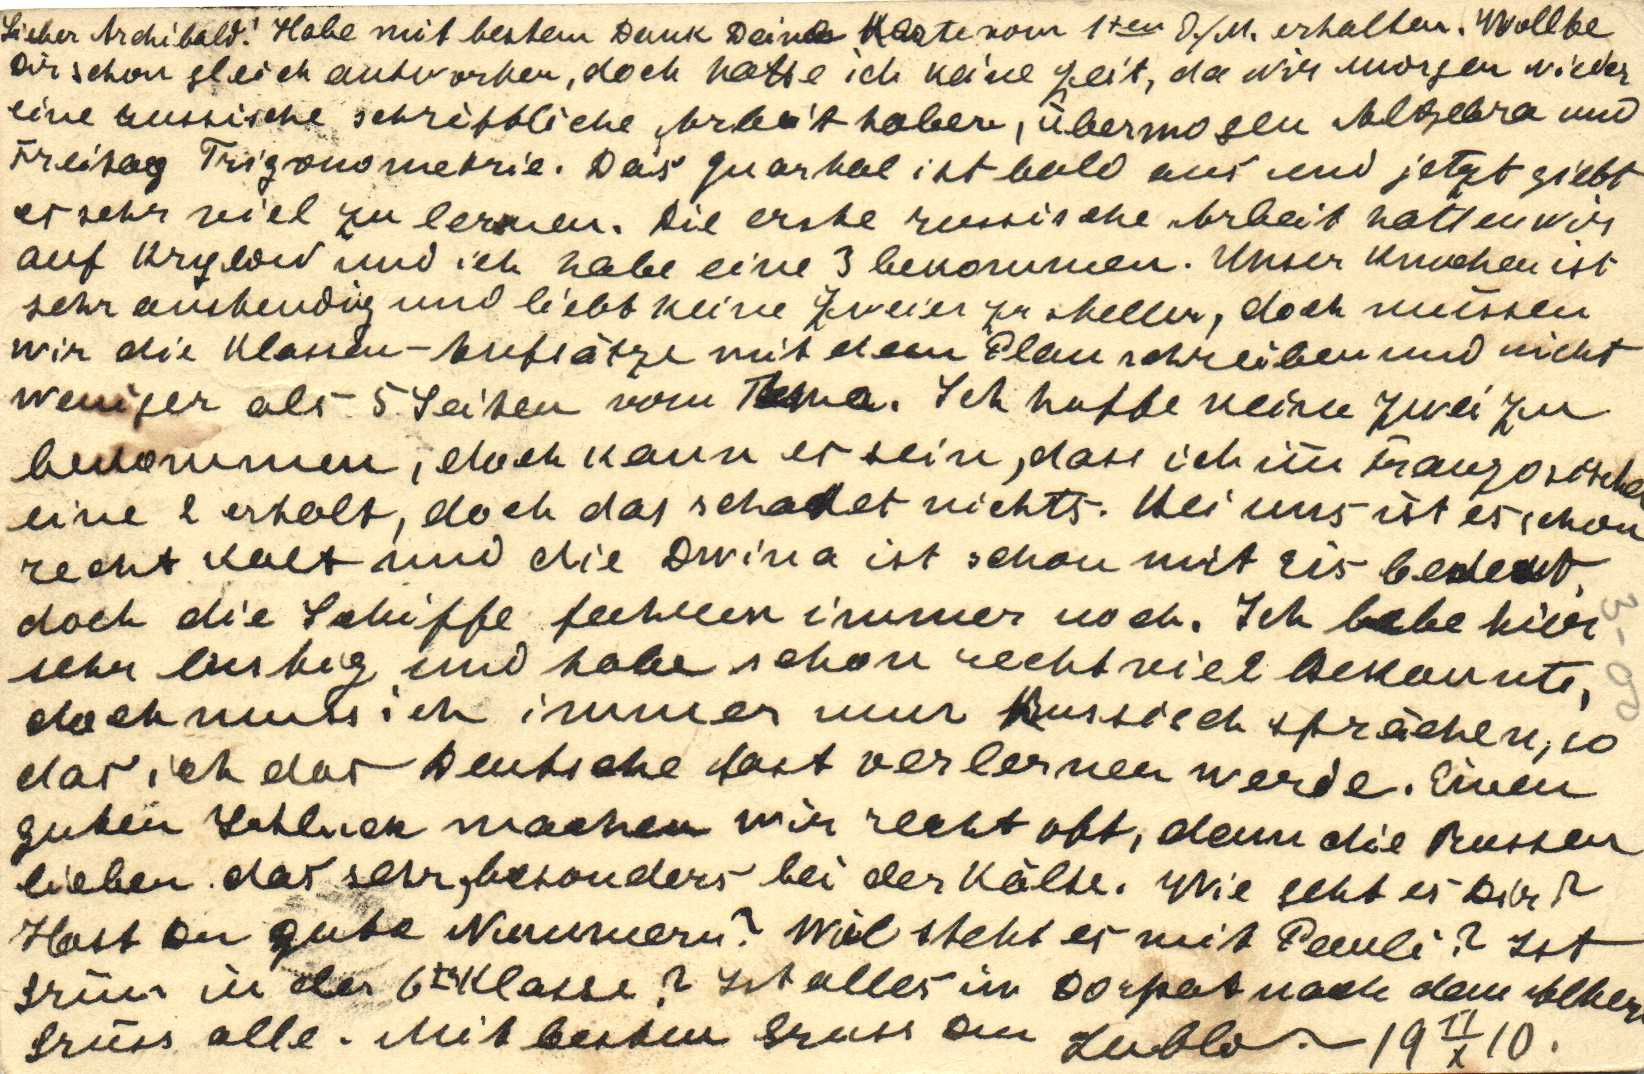 Lieber Archibald! Habe mit bestem Dank Deine Karte vom 1ten d/M. erhalten. Wollte
Dir schon gleich antworten, doch hatte ich keine Zeit, da wir morgen wieder
eine russische schriftliche Arbeit haben, übermogen Algebra und
Freitag Trigonometrie. Das Quartal ist bald aus und jetzt giebt
es sehr viel zu lernen. Die erste russische Arbeit hatten wir
auf Krylow und ich habe eine 3 bekommen. Unser Knochen ist
sehr anstendig und liebt keine Zweier zu stellen, doch müssen
wir die Klassen-Aufsätze mit dem Plan schreiben und nicht
weniger als 5 Seiten vom Tema. Ich hoffe keine Zwei zu
bekommen, doch kann es sein, dass ich im Französischen
eine 2 erhalt, doch das schadet nichts. Bei uns ist es schon
recht kalt und die Dwina ist schon mit Eis bedekt,
doch die Schiffe gehen immer noch. Ich lebe hier
sehr lustig und habe schon recht viel Bekannte,
doch muss ich immer nur Russisch sprächen, so
das ich das Deutsche fast verlernen werde. Einen
guten Schluck machen wir recht oft, denn die Russen
lieben das sehr, besonders bei der Kälte. Wie geht es Dir?
Hast Du gute Nummern? Wie steht es mit Pauli? Ist
Grün in der 6ten Klasse? Ist alles in Dorpat nach dem Alten
Grüss alle. Mit bestem Gruss Dein 19 II/X 10.
3-00